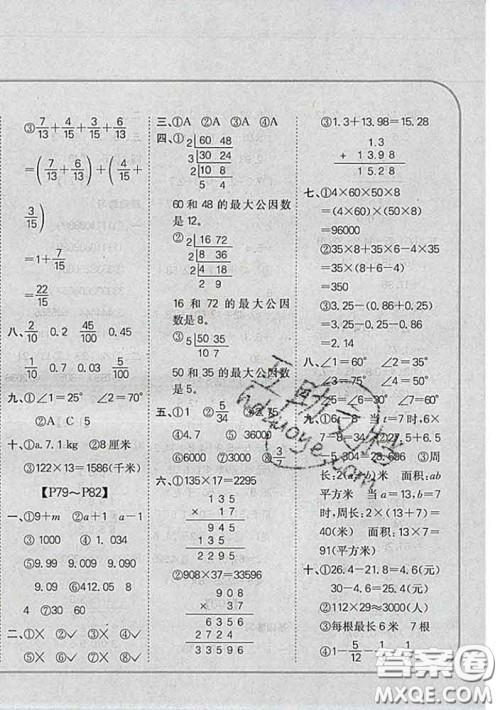 ③7/13+4/15+6/13+3/15
=(7/13+6/13)+(4/15+
3/15)
=1+7/15
=22/15
八、2/10 0.2 45/100 0.5
18/100 0.18 73/100 0.73
九、①∠1=60° ∠2=75°
②A C 5
十、①a.7.1kg ②8厘米
③122×13=1586(千米)
【P79～P82】
一、①9+m ②a+1 a-1
③1000 ④9.034
9.040 9.09 9.304
9.403 ⑤412.05 8
4 ⑦30 60
二、①× ②✓ ③× ④✓
⑤✓ ⑥✓ ⑦× ⑧✓
三、①A ②A ③A ④A
四、①2|60 48
2|30 24
3|15 12
5 4
60和48的最大公因数
是12。
②2|16 72
2|8 36
2|4 18
2 9
16和72的最大公因
数是8。
③5|50 35
10 7
50和35的最大公因数
是5。
五、①1 ②5/34
③6000
六、①135×17=2295
135
× 17
945
135
2295
②908×37=33596
908
× 37
6356
2724
33596
③1.3+13.98=15.28
1.3
+ 13.98
15.28
七、①4×60×50×8
=(4×50)×(60×8)
=96000
②35×8+35×6-4×35
=35×(8+6-4)
=350
③3.25-(0.86+0.25)
=3.25-0.25-0.86
=2.14
八、∠1=60° ∠2=60°
∠3=75° ∠4=60°
∠5=75° ∠6=60°
周长:2(a+b)米 面积:ab
平方米 当a=13,b=7
时,周长:2×(13+7)=
40(米) 面积:13×7=
91(平方米)
十、①26.4-21.8=4.6(元)
30-4.6=25.4(元)
②112×29≈3000(人)
③每根最长6米 7根
④1-5/12-
答案圈
MXQE.COM